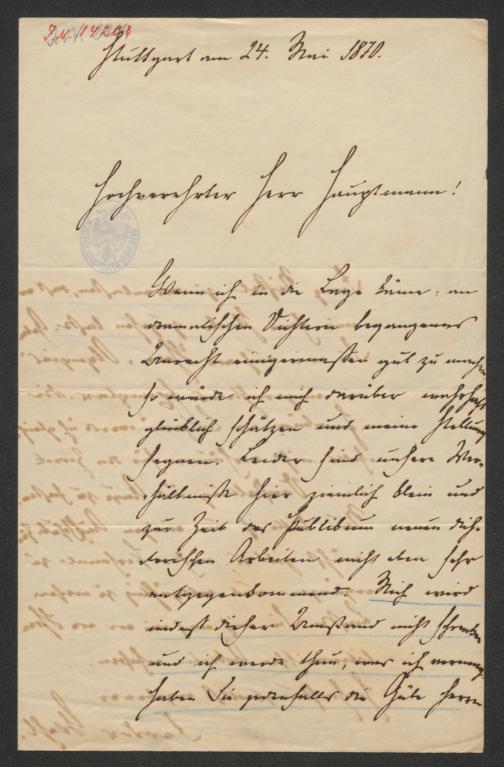 I.N. 14203
Stuttgart am 24. Mai 1870.
Hochverehrter Herr Hauptmann!
Wenn ich in die Lage käme, an
dramatischen Dichtern begangenes
Unrecht einigermaßen gut zu machen
so würde ich mich darüber wahrhaft
glücklich schätzen und meine Stellung
segnen. Leider sind unsere Ver-
hältnisse hier ziemlich klein und
zur Zeit das Publikum neuen dich-
terischen Arbeiten nicht eben sehr
entgegenkommend. Mich wird
indeß dieser Umstand nicht schrecken
und ich werde thun, was ich vermag
haben Sie jedenfalls die Güte Herrn